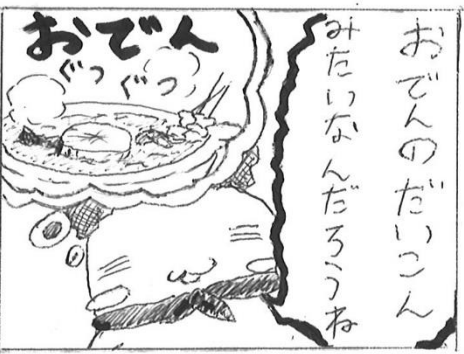 おでんのだいこん
みたいなんだろうね
おでん
ぐつ
ぐつ